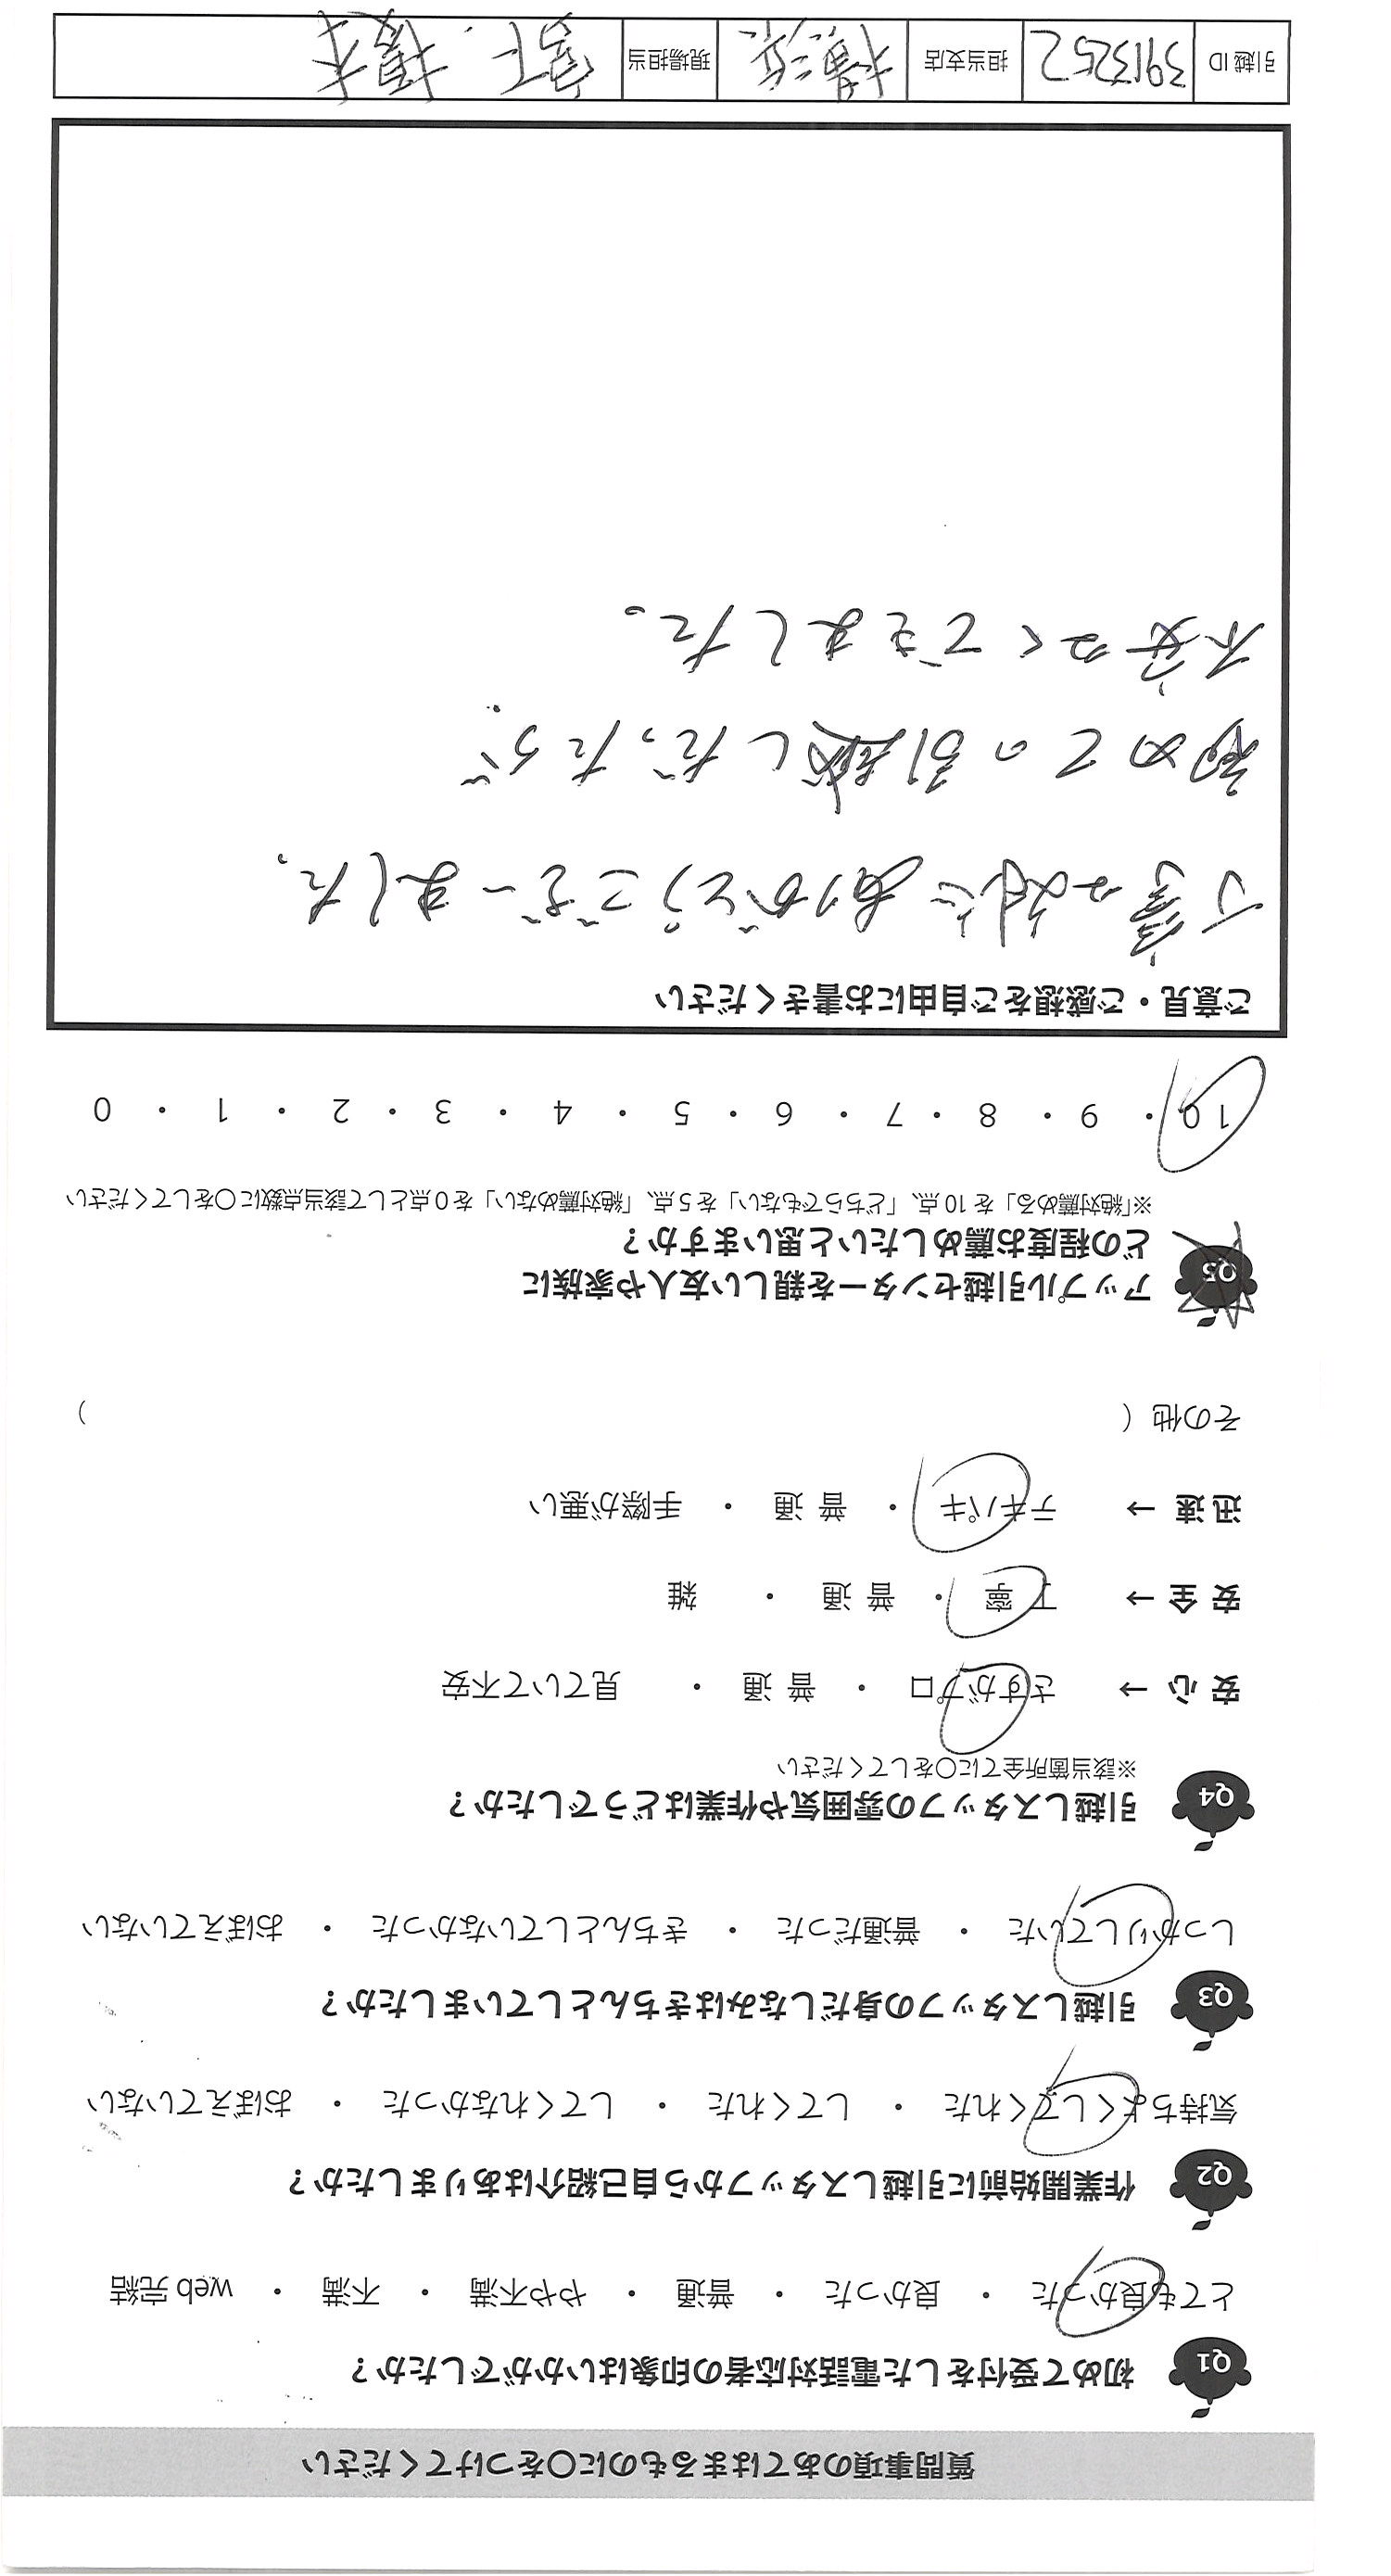 質問事項のあてはまるものに○をつけてください
Q1 初めて受付をした電話対応者の印象はいかがでしたか？
とても良かった ・ 良かった ・ 普通 ・ やや不満 ・ 不満 ・ web 完結
Q2 作業開始前に引越しスタッフから自己紹介はありましたか？
気持ちよくしてくれた ・ してくれた ・ してくれなかった ・ おぼえていない
Q3 引越しスタッフの身だしなみはきちんとしていましたか？
しっかりしていた ・ 普通だった ・ きちんとしていなかった ・ おぼえていない
Q4 引越しスタッフの雰囲気や作業はどうでしたか？
※該当箇所全てに○をしてください
安 心 → さすがプロ ・ 普 通 ・ 見ていて不安
安 全 → 丁 寧 ・ 普 通 ・ 雑
迅 速 → テキパキ ・ 普 通 ・ 手際が悪い
その他（ ）
Q5 アップル引越センターを親しい友人や家族に
どの程度お薦めしたいと思いますか？
※「絶対薦める」を 10 点、「どちらでもない」を 5 点、「絶対薦めない」を 0 点として該当点数に○をしてください
10 ・ 9 ・ 8 ・ 7 ・ 6 ・ 5 ・ 4 ・ 3 ・ 2 ・ 1 ・ 0
ご意見・ご感想をご自由にお書きください
丁寧な対応ありがとうございました。
初めての引越しだったが
不安なくできました。
引越 ID 3913252 担当支店 現場担当